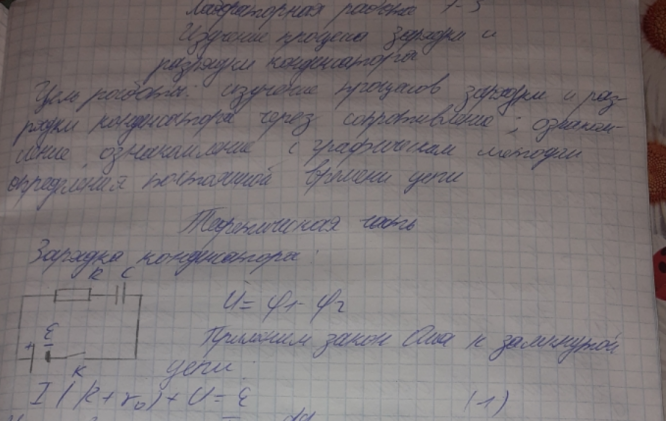 Лабораторная работа 7-3
Изучение процесса зарядки и
разрядки конденсатора
Цель работы: изучение процессов зарядки и раз-
рядки конденсатора через сопротивление; ознаком-
ление, ознакомление с графическим методом
определения постоянной времени цепи
Теоретическая часть
Зарядка конденсатора:
R C
U = φ1 - φ2
ε
+ -
Применим закон Ома к замкнутой
K
цепи:
I (R + r0) + U = ε (1)